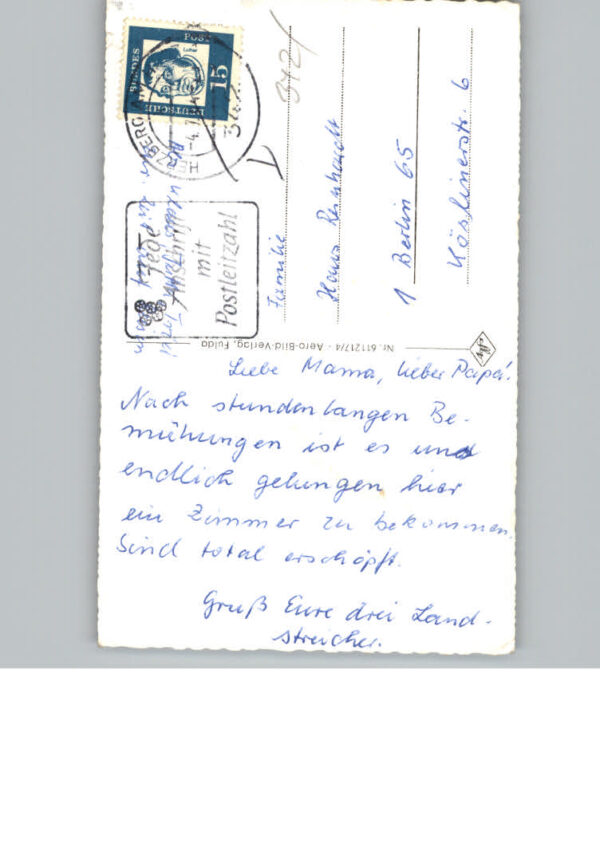 Liebe Mama, lieber Papa!
Nach stundenlangen Be-
mühungen ist es uns
endlich gelungen hier
ein Zimmer zu bekommen.
Sind total erschöpft.
Gruß Eure drei Land-
streicher.
Nr. 611217/4 - Aero-Bild-Verlag, Fulda
Familie
Hans Reinhardt
1 Berlin 65
Köslinerstr. 6
342/
DEUTSCHE
BUNDES
POST
15
Luther
Jede
Anschrift
mit
Postleitzahl